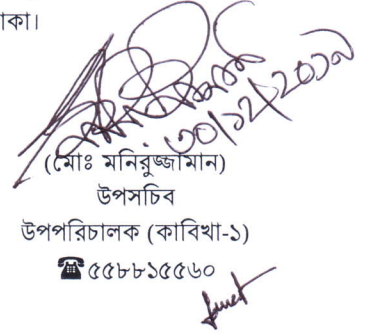 াকা।
৩০/১২/২০১৯
(মোঃ মনিরুজ্জামান)
উপসচিব
উপপরিচালক (কাবিখা-১)
☎৫৫৮৮১৫৫৬০